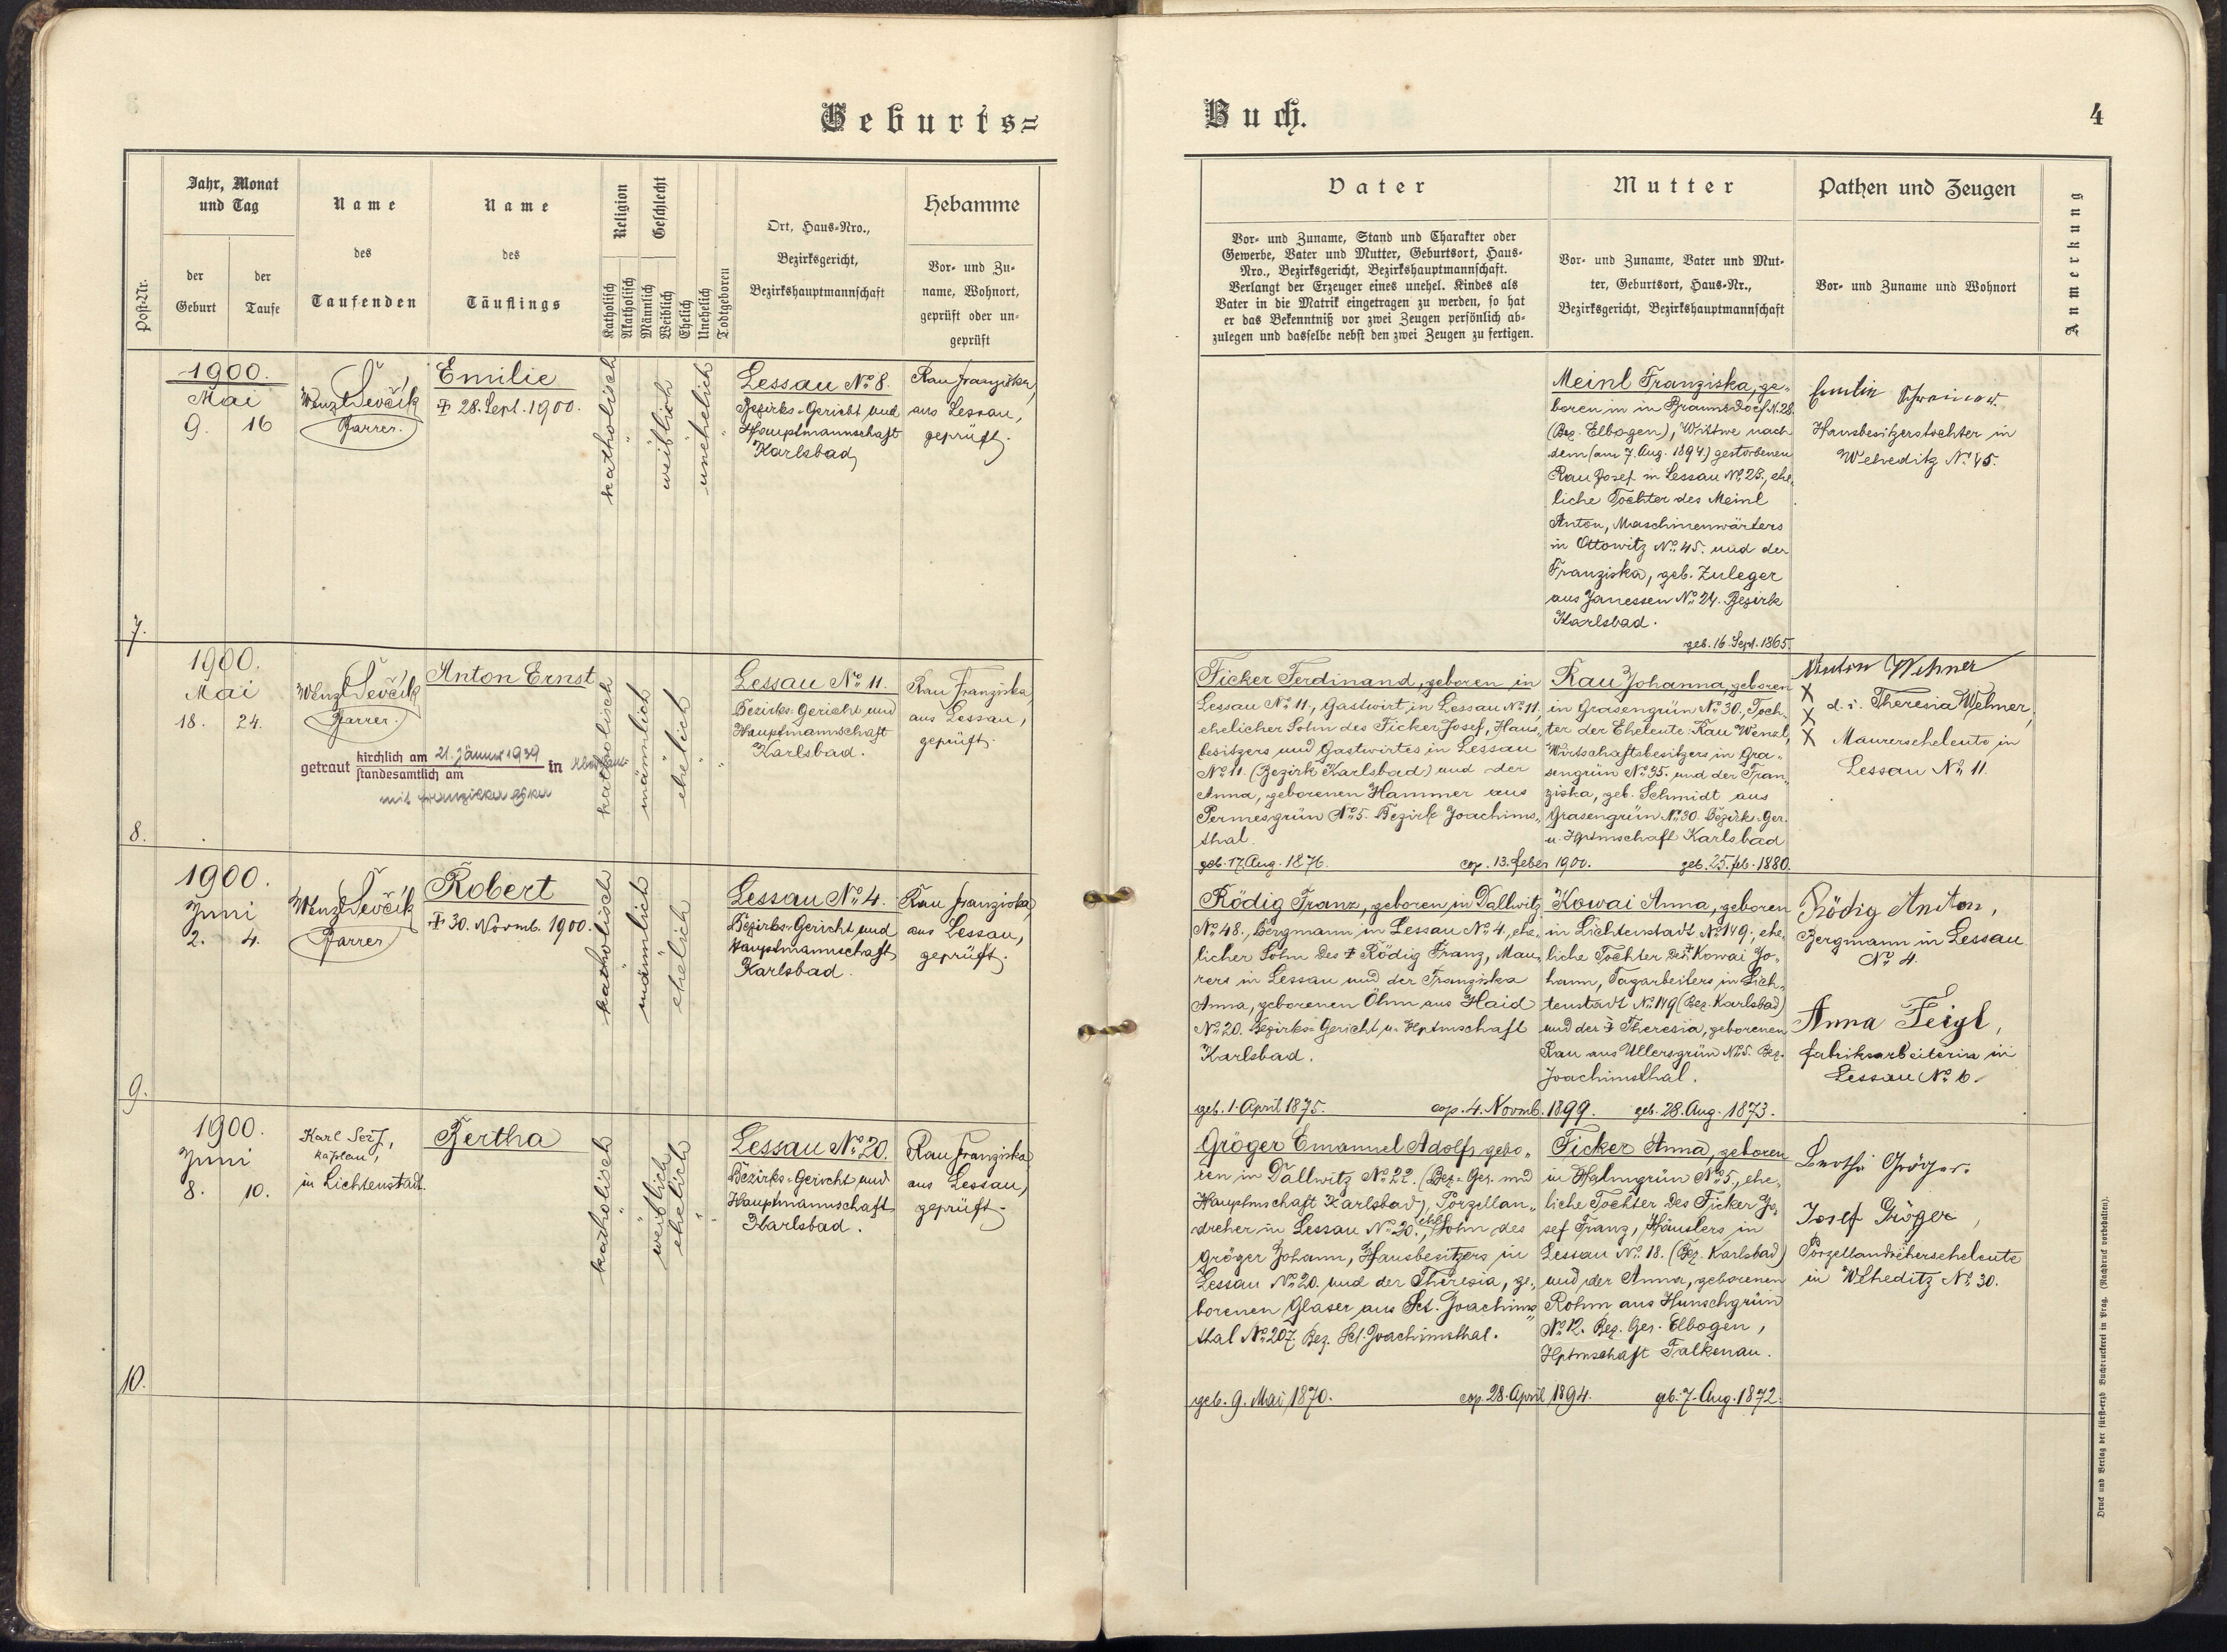 Geburts=
Jahr, Monat
und Tag
der
Geburt
der
Taufe
Name
des
Taufenden
Name
des
Täuflings
Religion
Geschlecht
Katholisch
Akatholisch
Männlich
Weiblich
Ehelich
Unehelich
Todtgeboren
Ort, Haus-Nro.,
Bezirksgericht,
Bezirkshauptmannschaft
Hebamme
Vor- und Zu-
name, Wohnort,
geprüft oder un-
geprüft
Post-Nr.
7.
1900.
Mai
9. 16
Wenzl Ševčík
Pfarrer.
Emilie
28. Sept. 1900.
katholisch
weiblich
unehelich
Lessau No. 8.
Bezirks-Gericht und
Hauptmannschaft
Karlsbad
Rau Franziska,
aus Lessau,
geprüft.
8.
1900.
Mai
18. 24.
Wenzl Ševčík
Pfarrer.
Anton Ernst
getraut kirchlich am 21. Jänner 1939 in
standesamtlich am
mit
katholisch
männlich
ehelich
Lessau No. 11.
Bezirks-Gericht und
Hauptmannschaft
Karlsbad.
Rau Franziska,
aus Lessau,
geprüft.
9.
1900.
Juni
2. 4.
Wenzl Ševčík
Pfarrer
Robert
30. Novmb. 1900.
katholisch
männlich
ehelich
Lessau No. 4.
Bezirks-Gericht und
Hauptmannschaft
Karlsbad.
Rau Franziska,
aus Lessau,
geprüft.
10.
1900.
Juni
8. 10.
Karl
Kaplan,
in Lichtenstadt.
Bertha
katholisch
weiblich
ehelich
Lessau No. 20.
Bezirks-Gericht und
Hauptmannschaft
Karlsbad.
Rau Franziska
aus Lessau,
geprüft.
Buch.
4
Vater
Vor- und Zuname, Stand und Charakter oder
Gewerbe, Vater und Mutter, Geburtsort, Haus-
Nro., Bezirksgericht, Bezirkshauptmannschaft.
Verlangt der Erzeuger eines unehel. Kindes als
Vater in die Matrik eingetragen zu werden, so hat
er das Bekenntniß vor zwei Zeugen persönlich ab-
zulegen und dasselbe nebst den zwei Zeugen zu fertigen.
Mutter
Vor- und Zuname, Vater und Mut-
ter, Geburtsort, Haus-Nr.,
Bezirksgericht, Bezirkshauptmannschaft
Pathen und Zeugen
Vor- und Zuname und Wohnort
Anmerkung
Meinl Franziska, ge-
boren in in Braunsdorf N. 28.
(Bez. Elbogen), Wittwe nach
dem (am 7. Aug. 1894) gestorbenen
Rau Josef in Lessau No. 25., ehe-
liche Tochter des Meinl
Anton, Maschinenwärters
in Ottowitz No. 45. und der
Franziska, geb. Zuleger
aus Janessen No. 24. Bezirk
Karlsbad.
geb. 16. Sept. 1865.
Emilie
Hausbesitzerstochter in
Weheditz No. 45.
Ficker Ferdinand, geboren in
Lessau No. 11., Gastwirt in Lessau No. 11,
ehelicher Sohn des Ficker Josef, Haus-
besitzers und Gastwirtes in Lessau
No. 11. (Bezirk Karlsbad) und der
Anna, geborenen Hammer aus
Permesgrün No. 5. Bezirk Joachims-
thal.
geb. 17. Aug. 1876. cop. 13. Feber 1900.
Rau Johanna, geboren
in Grasengrün No. 30., Toch-
ter der Eheleute Rau Wenzl,
Wirtschaftsbesitzers in Gra-
sengrün No. 35. und der Fran-
ziska, geb. Schmidt aus
Grasengrün No. 30. Bezirk-Ger.
u. Hptmschaft Karlsbad
geb. 25. Feb. 1880.
Anton Wehner
X
X d. i. Theresia Wehner,
X Maurerseheleute in
Lessau No. 11.
Rödig Franz, geboren in Dallwitz
No. 48., Bergmann in Lessau No. 4., ehe-
licher Sohn des † Rödig Franz, Mau-
rers in Lessau und der Franziska
Anna, geborenen Öhm aus Haid
No. 20. Bezirks-Gericht u. Hptmschaft
Karlsbad.
geb. 1. April 1875. cop. 4. Novmb. 1899.
Kowai Anna, geboren
in Lichtenstadt No. 149., ehe-
liche Tochter des † Kowai Jo-
hann, Tagarbeiters in Lich-
tenstadt No. 149 (Bez. Karlsbad)
und der † Theresia, geborenen
Rau aus Ullersgrün No. 5. Bez.
Joachimsthal.
geb. 28. Aug. 1873.
Rödig Anton,
Bergmann in Lessau
No. 4.
Anna Feigl,
Fabriksarbeiterin in
Lessau No. 6.
Gröger Emanuel Adolf, gebo-
ren in Dallwitz No. 22. (Bez.-Ger. und
Hauptmschaft Karlsbad), Porzellan-
dreher in Lessau No. 20., ehel. Sohn des
Gröger Johann, Hausbesitzers in
Lessau No. 20. und der Theresia, ge-
borenen Glaser aus Sct. Joachims-
thal No. 207. Bez. Sct. Joachimsthal.
geb. 9. Mai 1870. cop. 28. April 1894.
Ficker Anna, geboren
in Halmgrün No. 5., ehe-
liche Tochter des Ficker Jo-
sef Franz, Häuslers in
Lessau No. 18. (Bez. Karlsbad)
und der Anna, geborenen
Rohm aus Hunschgrün
No. 12. Bez. Ger. Elbogen,
Hptmschaft Falkenau.
geb. 7. Aug. 1872.
Bertha Gröger.
Josef Gröger,
Porzellandreherseheleute
in Weheditz No. 30.
Druck und Verlag der fürst-erzb. Buchdruckerei in Prag. (Nachdruck vorbehalten).